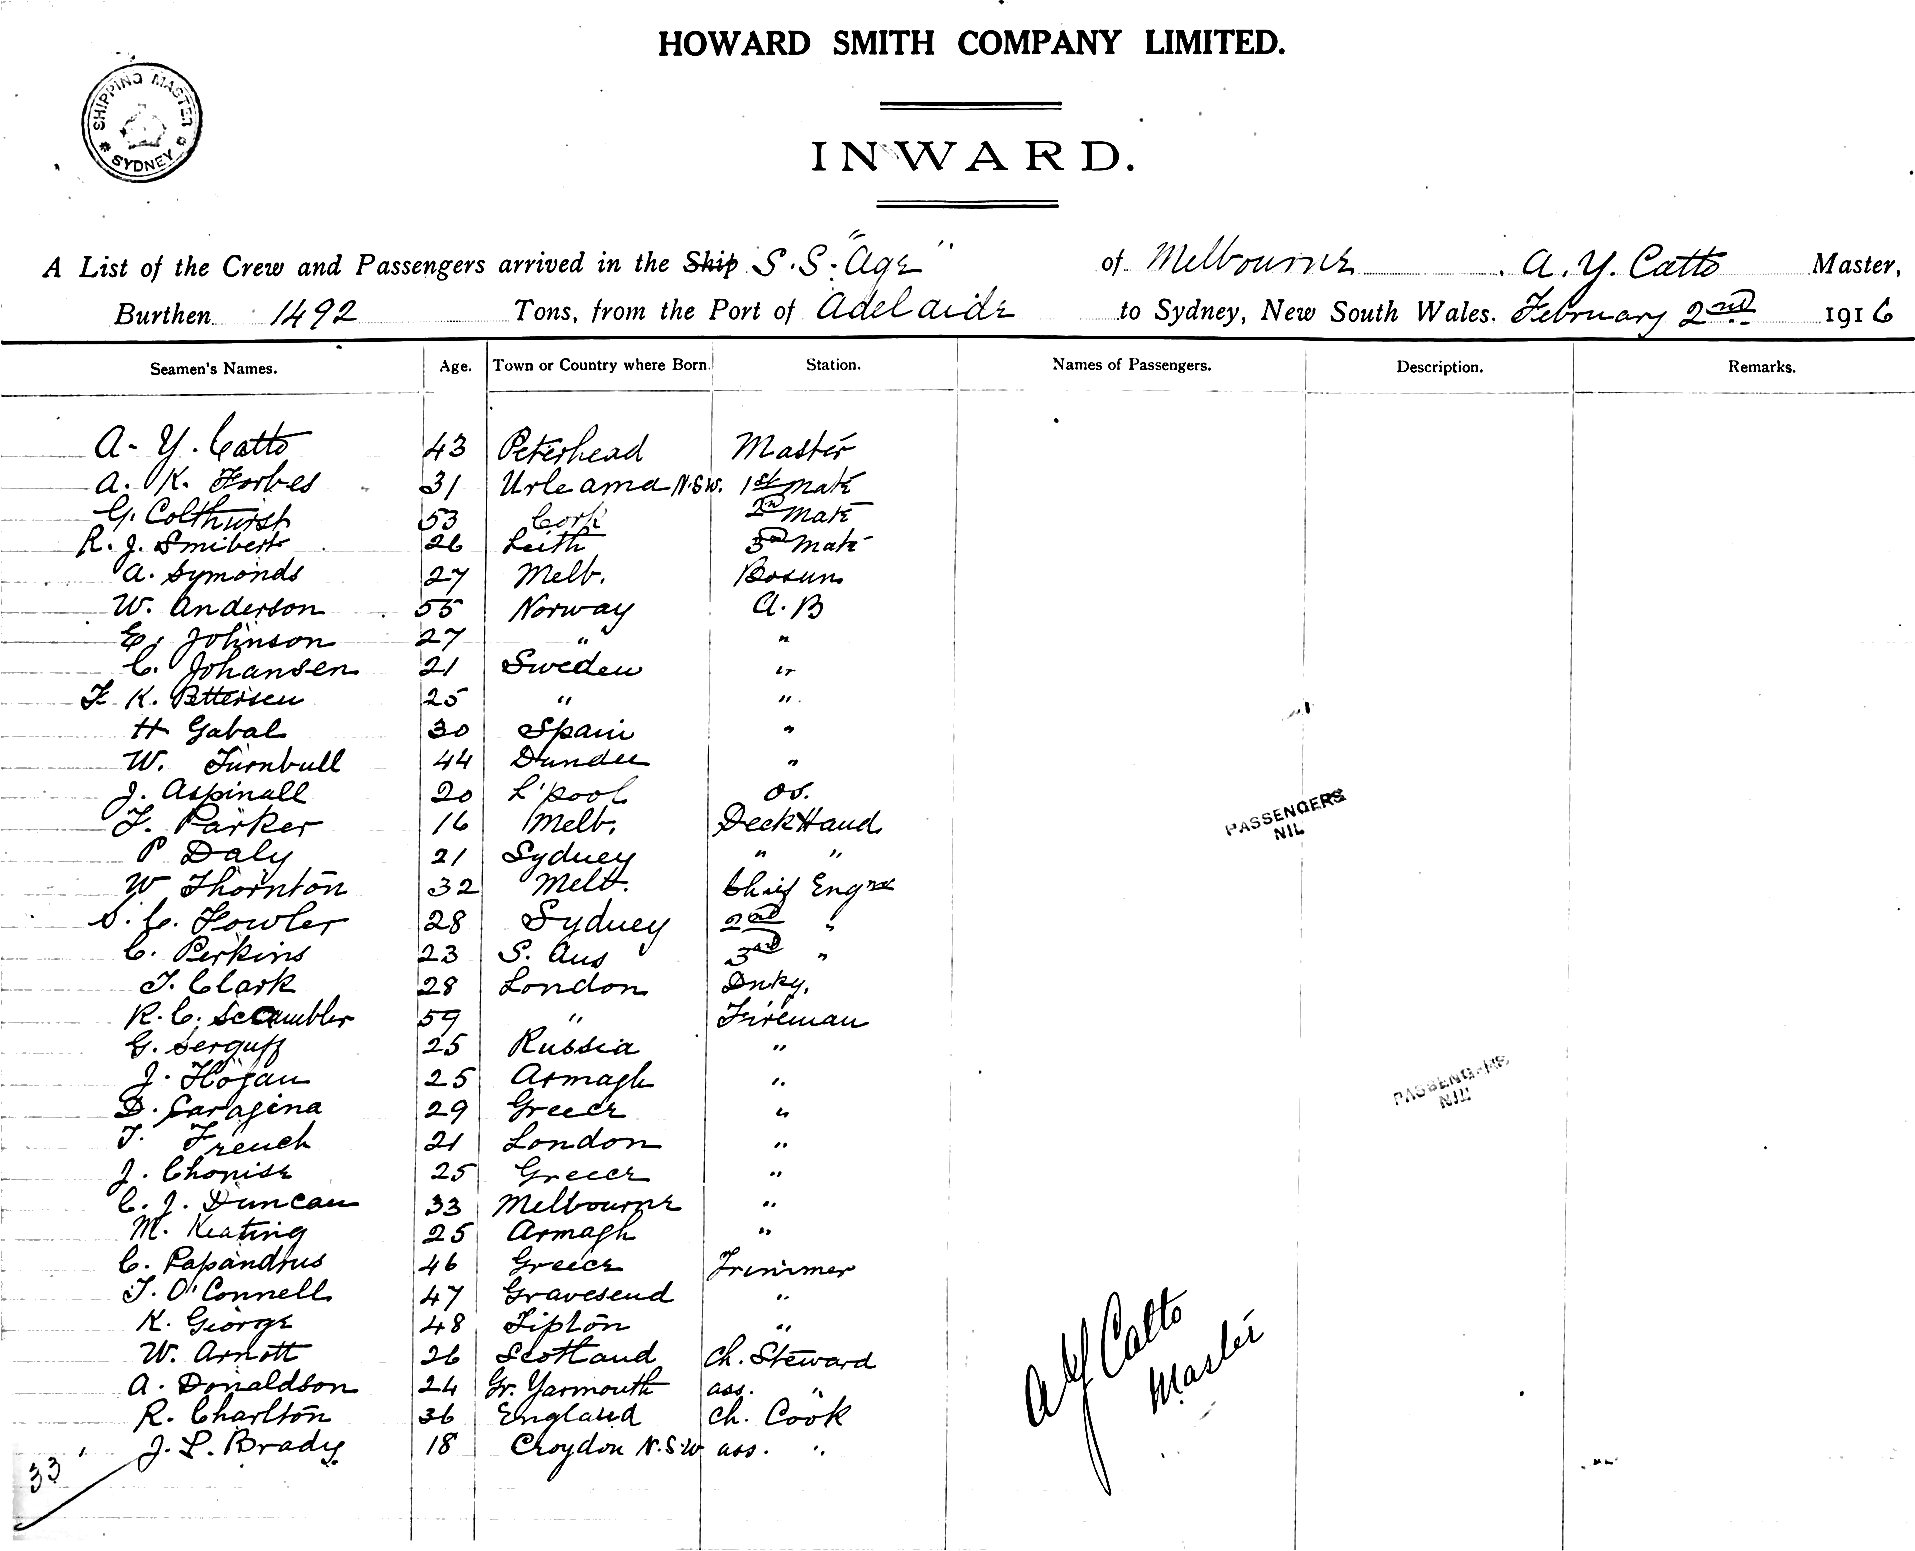 HOWARD SMITH COMPANY LIMITED.
SHIPPING MASTER SYDNEY
INWARD.
A List of the Crew and Passengers arrived in the Ship S.S. "Age" of Melbourne A. Y. Catto Master,
Burthen 1492 Tons, from the Port of Adelaide to Sydney, New South Wales. February 2nd 1916
Seamen's Names. Age. Town or Country where Born. Station. Names of Passengers. Description. Remarks.
A. Y. Catto 43 Peterhead Master
A. K. Forbes 31 N.S.W. 1st Mate
G. Colthurst 53 Cork 2nd Mate
R. J. Smibert 26 Leith 3rd Mate
A. Symonds 27 Melb. Bosun
W. Anderson 55 Norway A.B
E. Johnson 27 " "
C. Johansen 21 Sweden "
F K. Pettersen 25 " "
H Gabal 30 Spain "
W. Turnbull 44 Dundee "
J. Aspinall 20 L'pool OS.
T. Parker 16 Melb. Deck Hand
P Daly 21 Sydney " "
W Thornton 32 Melb. Chief Engr
S. C. Fowler 28 Sydney 2nd "
C. Perkins 23 S. Aus 3rd "
T. Clark 28 London Dnky.
R. C. Scambler 59 " Fireman
G. 25 Russia "
J. Hogan 25 Armagh "
D. 29 Greece "
T. French 21 London "
J. Chonise 25 Greece "
C. J. Duncan 33 Melbourne "
M. Keating 25 Armagh "
C. Papandrus 46 Greece Trimmer
T. O'Connell 47 Gravesend "
K. George 48 Tipton "
W. Arnott 26 Scotland Ch. Steward
A. Donaldson 24 Gr. Yarmouth ass. "
R. Charlton 36 England Ch. Cook
J. L. Brady 18 Croydon N.S.W ass. "
33
PASSENGERS
NIL
PASSENGERS
NIL
A Y Catto
Master